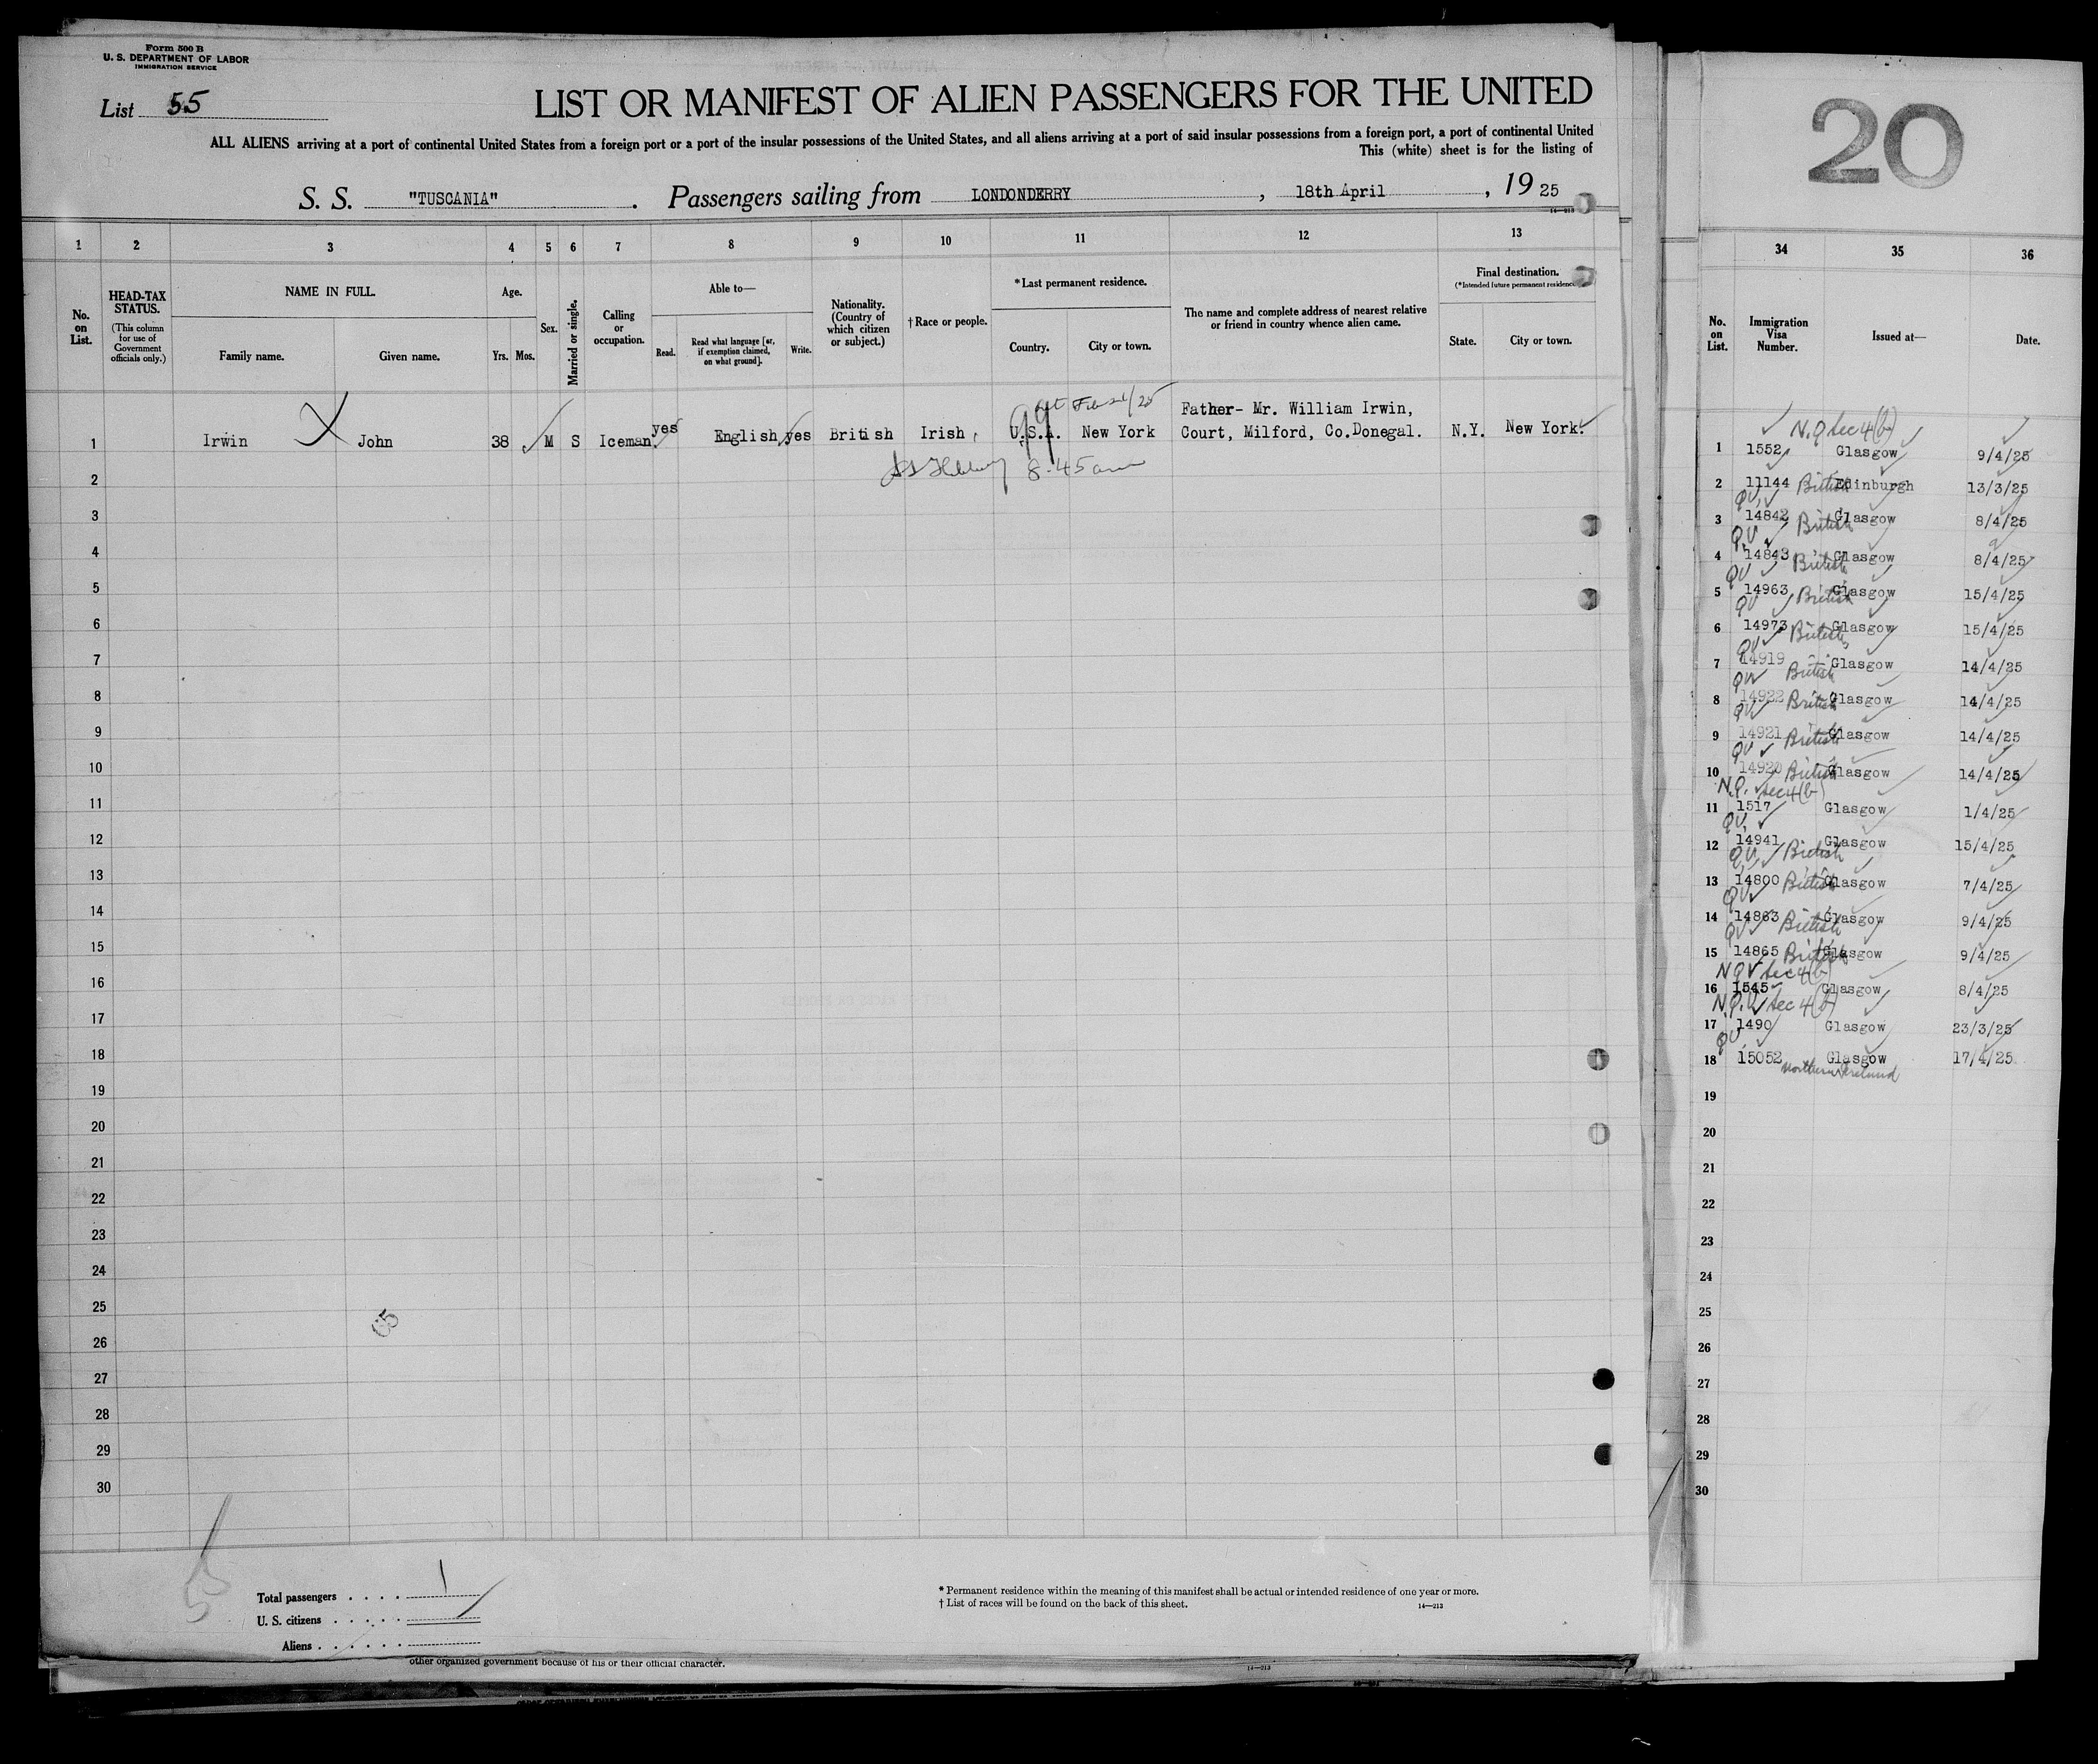 Form 500 B
U. S. DEPARTMENT OF LABOR
IMMIGRATION SERVICE
List 55
LIST OR MANIFEST OF ALIEN PASSENGERS FOR THE UNITED
ALL ALIENS arriving at a port of continental United States from a foreign port or a port of the insular possessions of the United States, and all aliens arriving at a port of said insular possessions from a foreign port, a port of continental United
This (white) sheet is for the listing of
S. S. "TUSCANIA". Passengers sailing from LONDONDERRY, 18th April, 1925
14—213
1 2 3 4 5 6 7 8 9 10 11 12 13
No. on List.
HEAD-TAX STATUS.
(This column for use of Government officials only.)
NAME IN FULL.
Family name.
Given name.
Age.
Yrs. Mos.
Sex.
Married or single.
Calling or occupation.
Able to—
Read.
Read what language [or, if exemption claimed, on what ground].
Write.
Nationality. (Country of which citizen or subject.)
† Race or people.
* Last permanent residence.
Country.
City or town.
The name and complete address of nearest relative or friend in country whence alien came.
Final destination.
(* Intended future permanent residence
State.
City or town.
Father- Mr. William Irwin,
1 Irwin John 38 M S Iceman. yes English yes British Irish U.S.A. New York Court, Milford, Co.Donegal. N.Y. New York.
8.45 am
2
3
4
5
6
7
8
9
10
11
12
13
14
15
16
17
18
19
20
21
22
23
24
25
26
27
28
29
30
65
55
Total passengers . . . . 1
U. S. citizens . . . . . .
Aliens . . . . . .
* Permanent residence within the meaning of this manifest shall be actual or intended residence of one year or more.
† List of races will be found on the back of this sheet.
14—213
other organized government because of his or their official character.
14—213
20
34 35 36
No. on List.
Immigration Visa Number.
Issued at—
Date.
N.Q sec 4(b)
1 1552 Glasgow 9/4/25
2 11144 British Edinburgh 13/3/25
QV
3 14842 British Glasgow 8/4/25
QV
4 14843 British Glasgow 8/4/25
QV
5 14963 British Glasgow 15/4/25
QV
6 14973 British Glasgow 15/4/25
QV
7 14919 British Glasgow 14/4/25
QV
8 14922 British Glasgow 14/4/25
QV
9 14921 British Glasgow 14/4/25
QV
10 14920 British Glasgow 14/4/25
N.Q. sec 4(b)
11 1517 Glasgow 1/4/25
QV
12 14941 British Glasgow 15/4/25
QV
13 14800 British Glasgow 7/4/25
QV
14 14863 British Glasgow 9/4/25
QV
15 14865 British Glasgow 9/4/25
NQV sec 4(b)
16 1545 Glasgow 8/4/25
N.Q.V sec 4(b)
17 1490 Glasgow 23/3/25
QV
18 15052 Glasgow 17/4/25
Northern Ireland
19
20
21
22
23
24
25
26
27
28
29
30